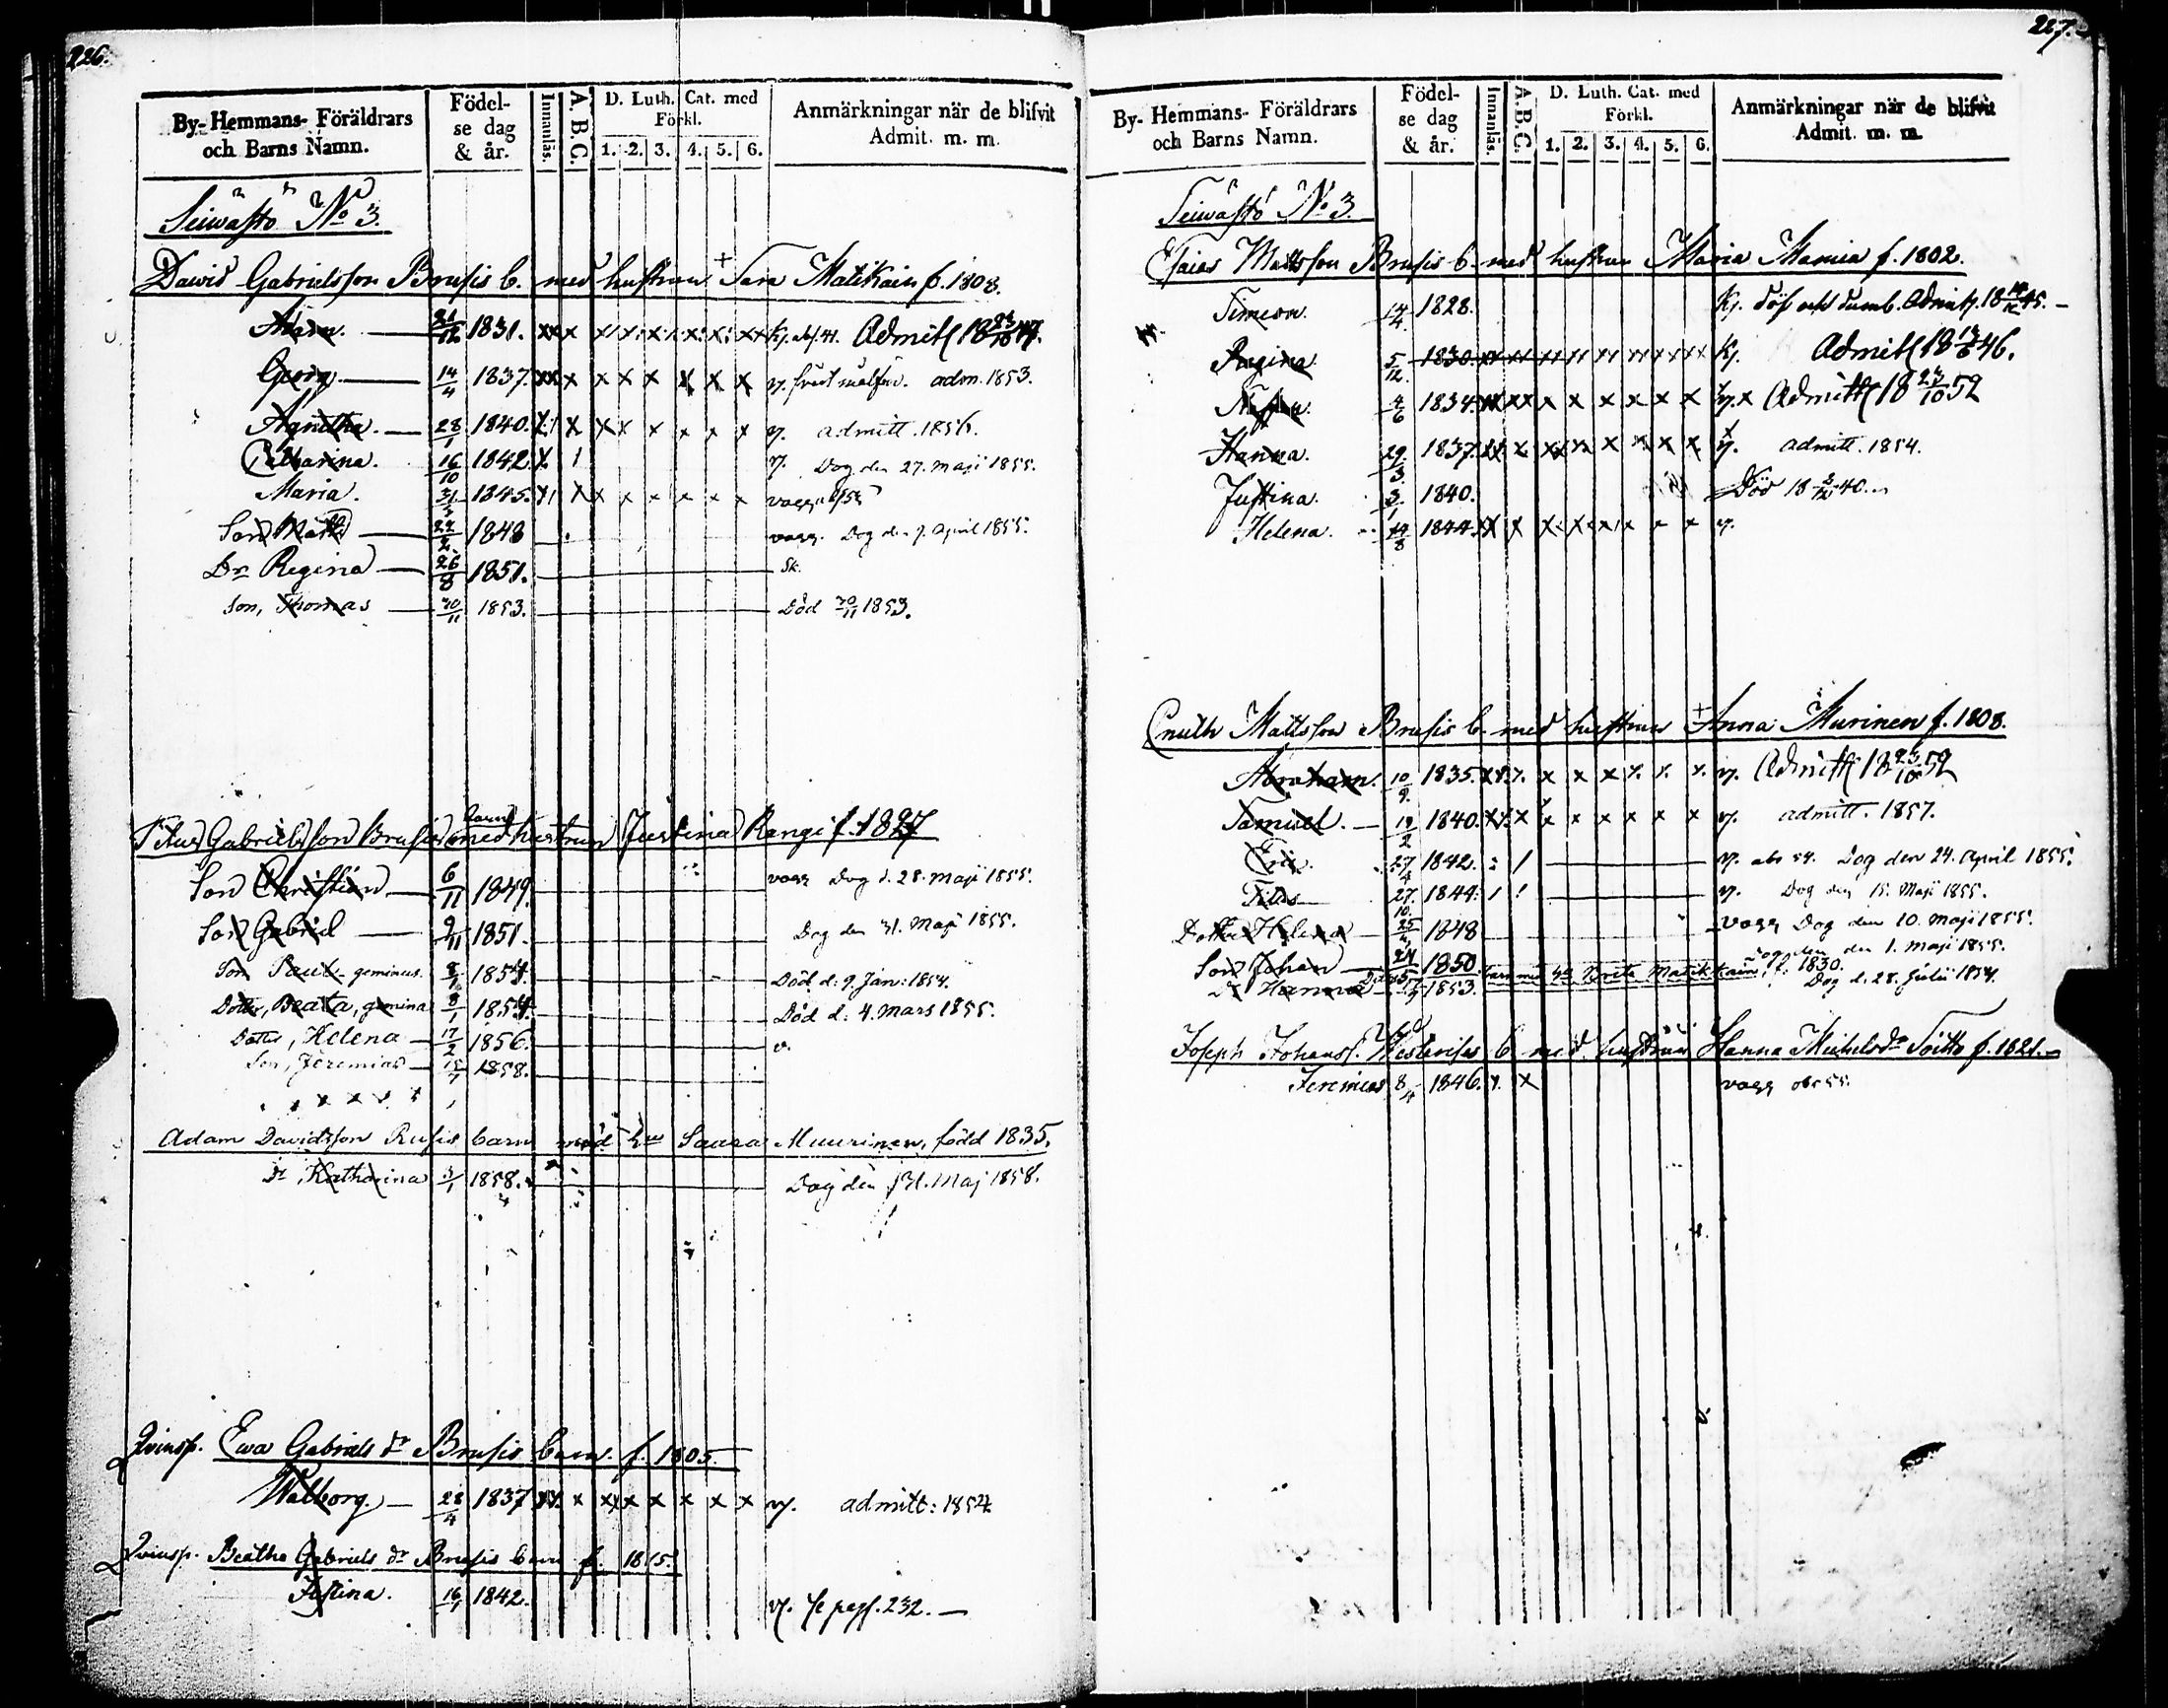 226.
By- Hemmans- Föräldrars och Barns Namn.
Födelse dag & år.
Innanläs.
A. B. C.
D. Luth. Cat. med Förkl.
1. 2. 3. 4. 5. 6.
Anmärkningar när de blifvit Admit. m. m.
Seiwästö No 3.
David Gabrielsson Brusis b. med hustrun + Sara Matikain f. 1808.
Adam. 21/12 1831. Admitt 18 23/10 47.
Georg 14/4 1837. adm. 1853.
Agnetha. 28/1 1840. v. admitt. 1856.
Catharina. 16/10 1842. v. Dog den 27. Maji 1855.
Maria. 1845.
Son Matt 1848 vagg. Dog den 9. April 1855.
Dr Regina 26/8 1851. Sk.
Son, Thomas 20/11 1853. Död 20/11 1853.
Titus Gabrielsson Brusis barn med hustrun Justina Rangi f. 1827
Son Christian 6/11 1849. vagg Dog d. 28. Maji 1855.
Son Gabriel 9/11 1851. Dog den 31. Maji 1855.
Son Paul geminus. 8/1 1854. Död d: 9. Jan: 1854.
Dotter, Beata, gemina 8/1 1854. Död d: 4. Mars 1855.
Dotter, Helena 17/2 1856. v.
Son, Jeremias 1858.
Adam Davidsson Rusis barn med hu Saara Muurinen, född 1835.
Dr, Katharina 3/1 1858. Dog den 31. Maj 1858.
Qvinsp. Ewa Gabriels dr Brusis barn. f. 1805.
Walborg. 28/4 1837 v. admitt: 1854
Qvinsp. Beatha Gabriels dr Brusis barn f. 1815.
Justina. 1842. v. se pag. 232.
227.
By- Hemmans- Föräldrars och Barns Namn.
Födelse dag & år.
Innanläs.
A. B. C.
D. Luth. Cat. med Förkl.
1. 2. 3. 4. 5. 6.
Anmärkningar när de blifvit Admit. m. m.
Seiwästö No 3.
Esaias Mattsson Brusis b. med hustrun Maria Mamia f. 1802.
Simeon. 14/4 1828. Kj. döf och dumb.
Regina. 5/12 1830. Kj. Admitt 46.
4/6 1834. Admitt 18 23/10 52
Hanna. 29/3 1837. v. admitt. 1854.
Justina. 1840. Död
Helena. 1844. v.
Cnuth Mattsson Brusis b. med hustrun + Anna Murinen f. 1808.
Abraham. 10/9 1835. v. Admitt 18 23/10 52
Samuel. 19/2 1840. v. admitt. 1857.
Eric. 27/4 1842. v. abs 54. Dog den 24. April 1855.
Titus 27/10 1844. v. Dog den 15. Maji 1855.
Dotter Helena 1848 vagg Dog den 10. Maji 1855.
Son Johan 1850 Dog den 1. Maji 1855.
barn med Hu Brita Matikkain, f. 1830.
Dr Hanna 1853. Dog d. 28. Julii 1854.
Joseph Johanss. b. med hustrun Hanna Michelsdr Söitto f. 1821.
Jeremias 8/4 1846. vagg abs 55.